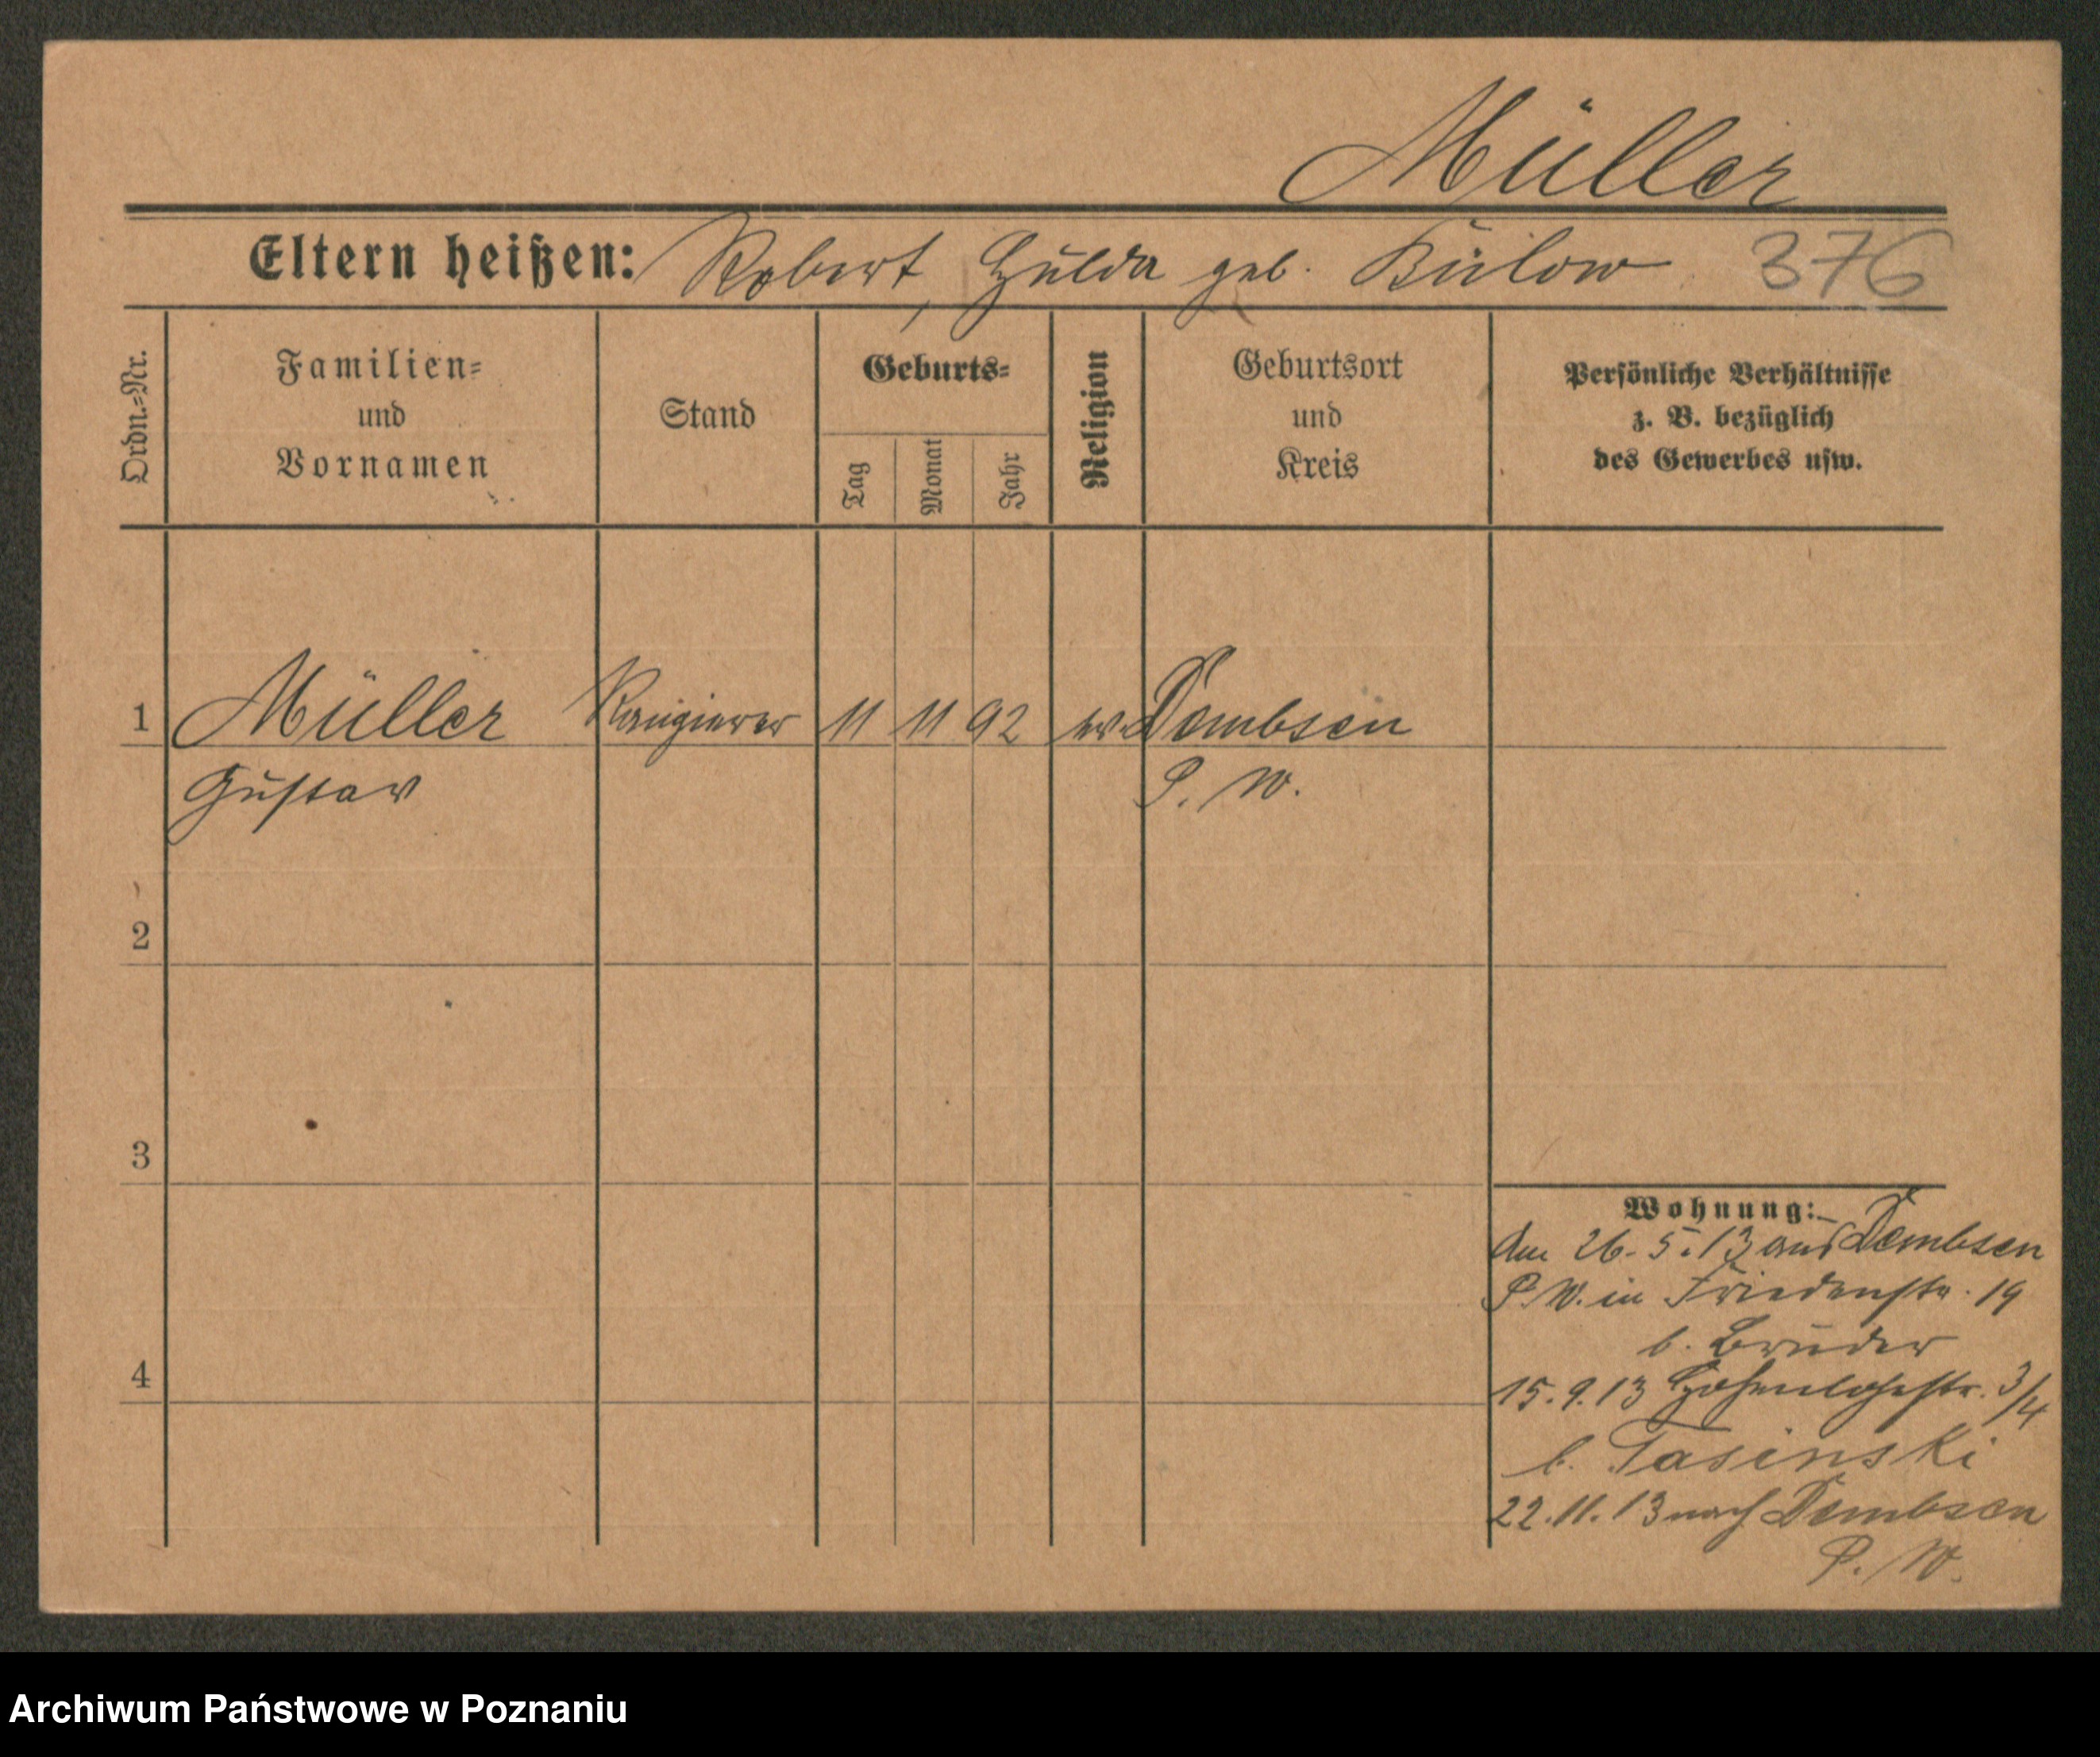 Müller
Eltern heißen: Robert, Hulda geb. Bülow 376
Ordn.-Nr.
Familien-
und
Vornamen
Stand
Geburts-
Tag
Monat
Jahr
Religion
Geburtsort
und
Kreis
Persönliche Verhältnisse
z. B. bezüglich
des Gewerbes usw.
1 Müller Rangierer 11 11 92 ev. Dembsen
Gustav P. W.
2
3
4
Wohnung:
Am 26.5.13 aus Dembsen
P. W. in Friedenstr. 19
b. Bruder
15.9.13 Hohenlohestr. 3/4
b. Tasinski
22.11.13 nach Dembsen
P. W.
Archiwum Państwowe w Poznaniu